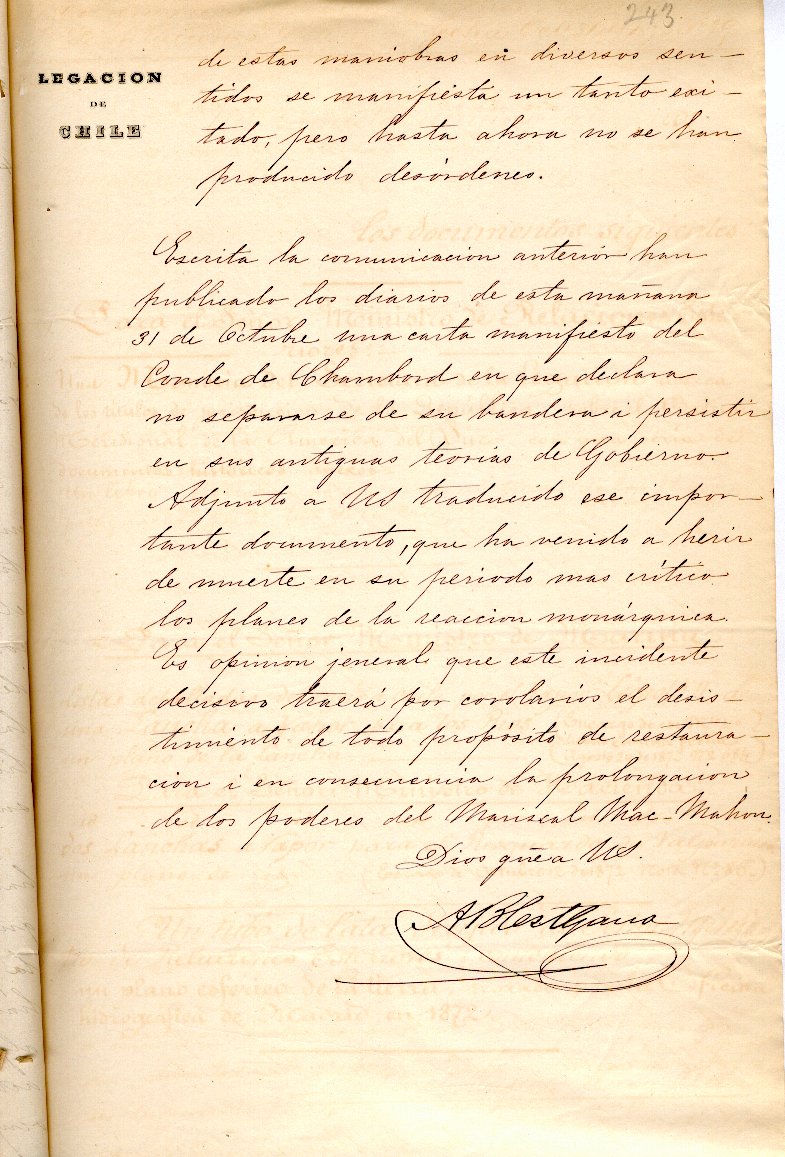 243
LEGACION
DE
CHILE
de estas maniobras en diversos sen-
tidos se manifiesta un tanto exi-
tado, pero hasta ahora no se han
producido desórdenes.
Escrita la comunicacion anterior han
publicado los diarios de esta mañana
31 de Octubre una carta manifiesto del
Conde de Chambord en que declara
no separarse de su bandera i persistir
en sus antiguas teorias de Gobierno.
Adjunto a US traducido ese impor-
tante documento, que ha venido a herir
de muerte en su periodo mas crítico
los planes de la reaccion monárquica.
Es opinion jeneral que este incidente
decisivo traerá por corolarios el desis-
timiento de todo propósito de restaura-
cion i en consecuencia la prolongacion
de los poderes del Mariscal Mac-Mahon.
Dios gũe a US.
A Blest Gana